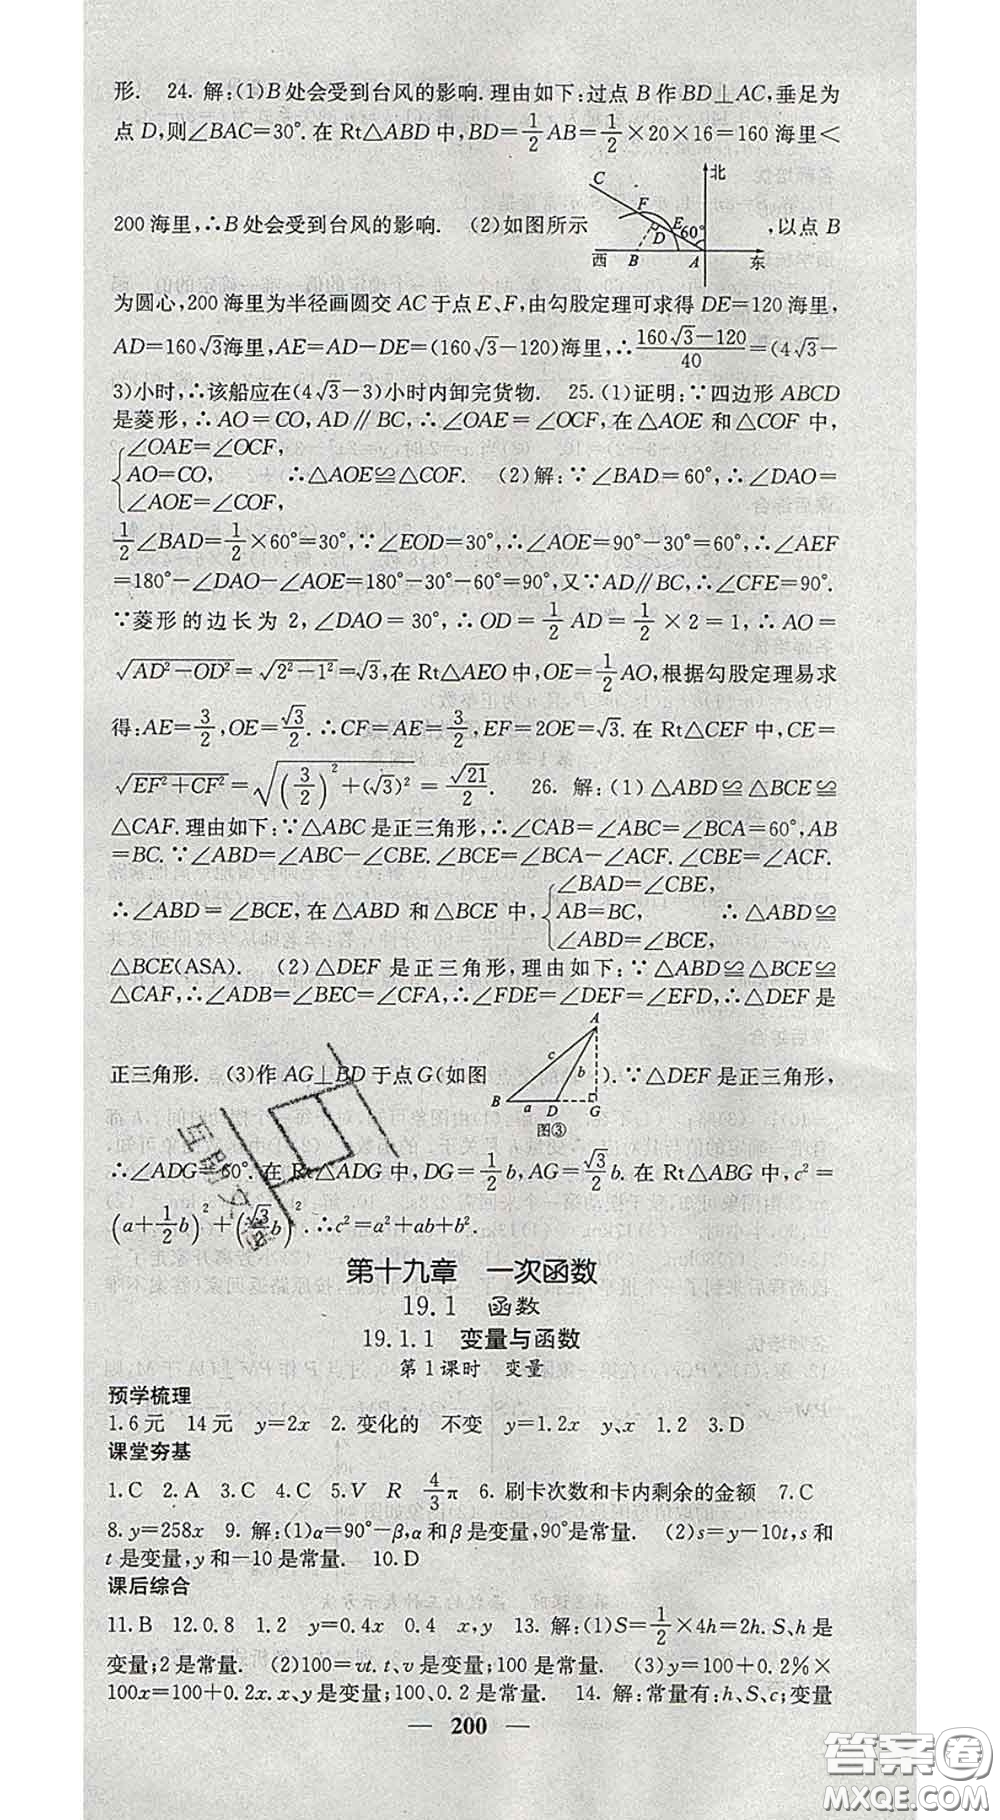 形.　24. 解:(1)B处会受到台风的影响.理由如下:过点 B 作 BD⊥AC,垂足为
点 D,则∠BAC=30°.在 Rt△ABD 中,BD=1/2 AB=1/2×20×16=160 海里<
200 海里,∴B 处会受到台风的影响.　(2)如图所示
北
C
F
E
D
60°
西
B
A
东
,以点 B
为圆心,200 海里为半径画圆交 AC 于点 E、F,由勾股定理可求得 DE=120 海里,
AD=160√3海里,AE=AD-DE=(160√3-120)海里,∴(160√3-120)/40=(4√3-
3)小时,∴该船应在(4√3-3)小时内卸完货物.　25.(1)证明:∵四边形 ABCD
是菱形,∴AO=CO,AD∥BC,∴∠OAE=∠OCF,在△AOE 和△COF 中,
∠OAE=∠OCF,
AO=CO,　∴△AOE≌△COF.　(2)解:∵∠BAD=60°,∴∠DAO=
∠AOE=∠COF,
1/2∠BAD=1/2×60°=30°,∵∠EOD=30°,∴∠AOE=90°-30°=60°,∴∠AEF
=180°-∠DAO-∠AOE=180°-30°-60°=90°,又∵AD∥BC,∴∠CFE=90°.
∵菱形的边长为 2,∠DAO=30°,∴OD=1/2 AD=1/2×2=1,∴AO=
√(AD²-OD²)=√(2²-1²)=√3,在 Rt△AEO 中,OE=1/2AO,根据勾股定理易求
得:AE=3/2,OE=√3/2.∴CF=AE=3/2,EF=2OE=√3.在 Rt△CEF 中,CE=
√(EF²+CF²)=√((3/2)²+(√3)²)=√21/2.　26. 解:(1)△ABD≌△BCE≌
△CAF.理由如下:∵△ABC 是正三角形,∴∠CAB=∠ABC=∠BCA=60°,AB
=BC.∵∠ABD=∠ABC-∠CBE.∠BCE=∠BCA-∠ACF.∠CBE=∠ACF.
∴∠ABD=∠BCE,在△ABD 和△BCE 中,
∠BAD=∠CBE,
AB=BC,　∴△ABD≌
∠ABD=∠BCE,
△BCE(ASA).　(2)△DEF 是正三角形,理由如下:∵△ABD≌△BCE≌
△CAF,∴∠ADB=∠BEC=∠CFA,∴∠FDE=∠DEF=∠EFD,∴△DEF 是
正三角形.　(3)作 AG⊥BD于点G(如图
A
c
b
B
a
D
G
图③
).∵△DEF 是正三角形,
∴∠ADG=60°.在 Rt△ADG 中,DG=1/2b,AG=√3/2b.在 Rt△ABG 中,c²=
(a+1/2b)²+(√3/2b)².∴c²=a²+ab+b².
第十九章　一次函数
19.1　函数
19.1.1　变量与函数
第1课时　变量
预学梳理
1.6元　14元　y=2x　2. 变化的　不变　y=1.2x　y、x　1.2　3.D
课堂夯基
1.C　2.A　3.C　4.C　5.V　R　4/3π　6. 刷卡次数和卡内剩余的金额　7.C
8.y=258x　9. 解:(1)α=90°-β,α和β是变量,90°是常量.　(2)s=y-10t,s和
t是变量,y和-10是常量.　10.D
课后综合
11.B　12.0.8　1.2　y=0.4x　0.4　x,y　13. 解:(1)S=1/2×4h=2h.S、h是
变量;2是常量.　(2)100=vt.t、v是变量;100是常量.　(3)y=100+0.2%×
100x=100+0.2x.x、y是变量;100、0.2是常量.　14. 解:常量有:h、S、c;变量
— 200 —
答案圈
MXQE.COM